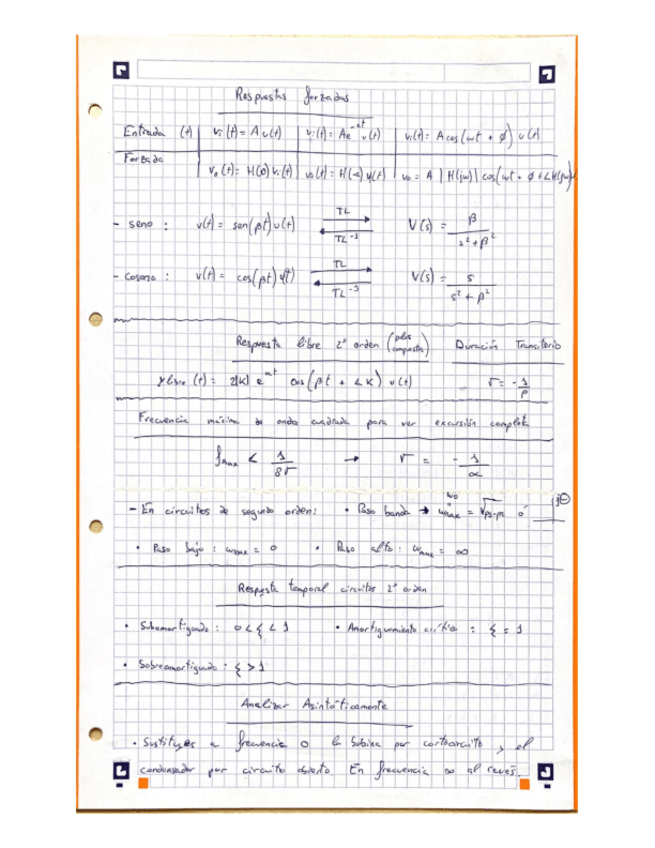 Respuestas forzadas
Entrada (t) | vi(t) = A u(t) | vi(t) = Ae^-αt u(t) | vi(t) = A cos(ωt + ϕ) u(t)
Forzada | vo(t) = H(0) vi(t) | vo(t) = H(-α) vi(t) | vo = A |H(jω)| cos(ωt + ϕ + ∠H(jω))
- seno : v(t) = sen(βt) u(t) TL TL^-1 V(s) = β / s² + β²
- coseno : v(t) = cos(βt) u(t) TL TL^-1 V(s) = s / s² + β²
Respuesta libre 2º orden (polos complejos) Duración Transitorio
y libre (t) = 2|K| e^αt cos(βt + ∠K) u(t) τ = - 1/p
Frecuencia máxima de onda cuadrada para ver excursión completa
fmax < 1/8τ → τ = - 1/α
- En circuitos de segundo orden: • Paso banda → ωmax = ω0 = √p1·p2 ó
• Paso bajo : ωmax = 0 • Paso alto : ωmax = ∞
Respuesta temporal circuitos 2º orden
• Subamortiguado : 0 < ξ < 1 • Amortiguamiento crítico : ξ = 1
• Sobreamortiguado : ξ > 1
Analizar Asintóticamente
• Sustituyes a frecuencia 0 la bobina por cortocircuito y el
condensador por circuito abierto. En frecuencia ∞ al revés.